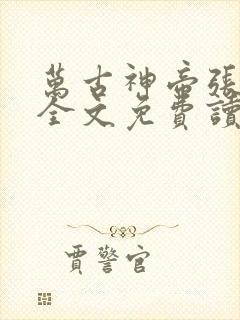 萬古神帝張
全文免費讀
賈警官